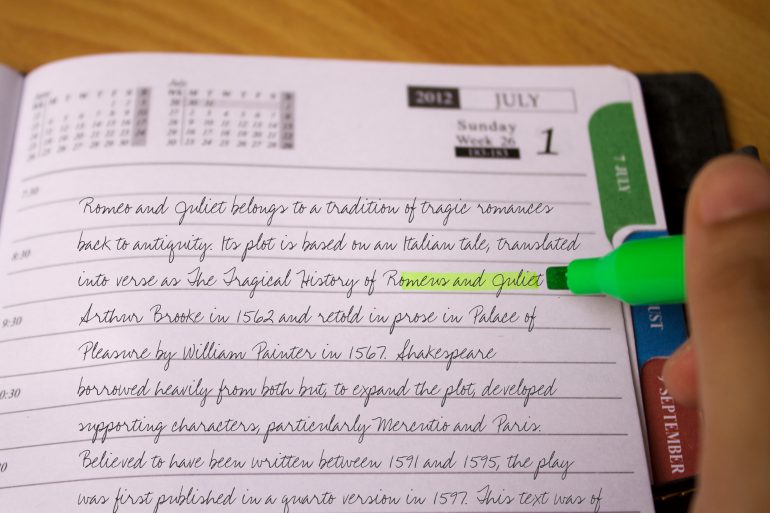 2012 JULY
July
Sunday
Week 26
183-183
1
7 JULY
7:30
Romeo and Juliet belongs to a tradition of tragic romances
8:30
back to antiquity. Its plot is based on an Italian tale, translated
into verse as The Tragical History of Romeus and Juliet
9:30
Arthur Brooke in 1562 and retold in prose in Palace of
Pleasure by William Painter in 1567. Shakespeare
0:30
borrowed heavily from both but, to expand the plot, developed
supporting characters, particularly Mercutio and Paris.
SEPTEMBER
Believed to have been written between 1591 and 1595, the play
was first published in a quarto version in 1597. This text was of